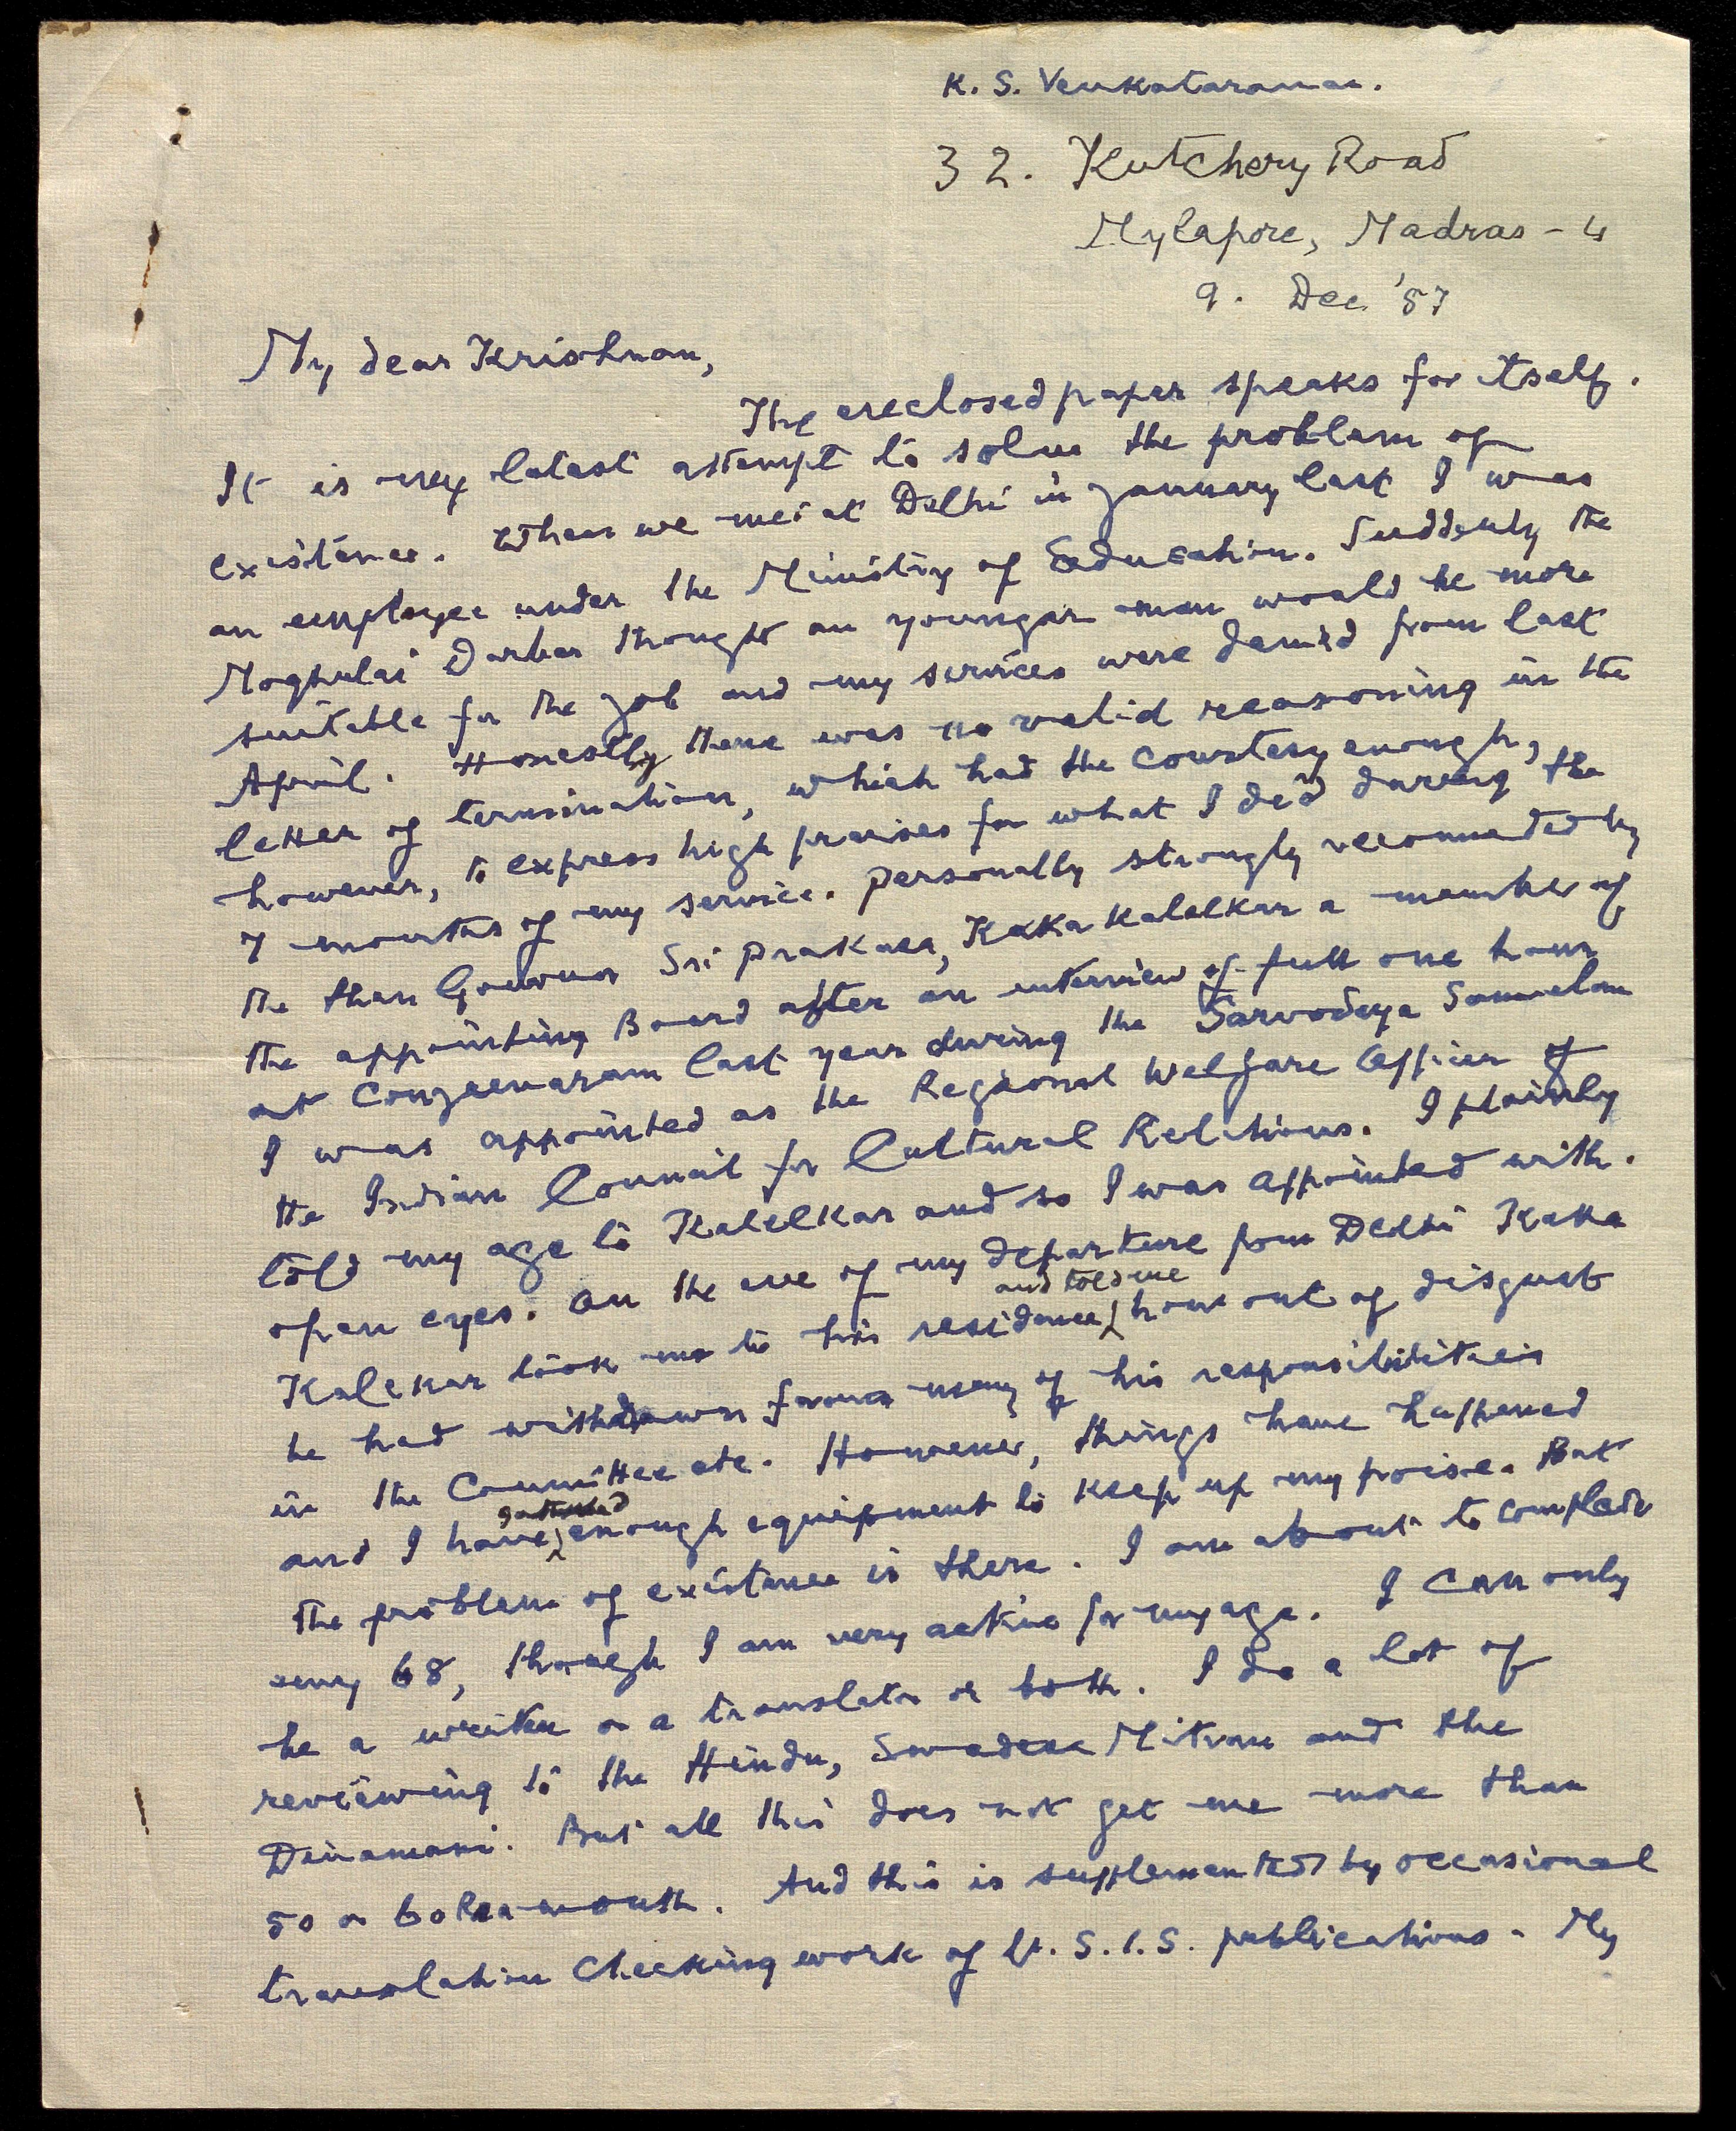 K. S. Venkataraman.
32. Kutchery Road
Mylapore, Madras - 4
9. Dec '57
My dear Krishnan,
The enclosed paper speaks for itself.
It is my latest attempt to solve the problem of
existence. When we met at Delhi in January last I was
an employee under the Ministry of Education. Suddenly the
Moghulai Darbar thought an younger man would be more
suitable for the job and my services were denied from last
April. Honestly there was no valid reasoning in the
letter of termination, which had the courtesy enough,
however, to express high praises for what I did during the
7 months of my service. Personally strongly recommended by
the then Governor Sri Prakasa, Kaka Kalelkar a member of
the appointing Board after an interview of full one hour
at Conjeevaram last year during the Sarvodaya Samelan
I was appointed as the Regional Welfare Officer of
the Indian Council for Cultural Relations. I plainly
told my age to Kalelkar and so I was appointed with
open eyes. On the eve of my departure from Delhi Kaka
Kalekar took me to his residence and told me how out of disgust
he had withdrawn from many of his responsibilities
in the Committee etc. However, things have happened
and I have gathered enough equipment to keep up my poise. But
the problem of existence is there. I am about to complete
my 68, though I am very active for my age. I can only
be a writer or a translator or both. I do a lot of
reviewing to the Hindu, Swadesa Mitran and the
Dinamani. But all this does not get me more than
50 or 60 Rs a month. And this is supplemented by occasional
translation checking work of U.S.I.S. publications. My